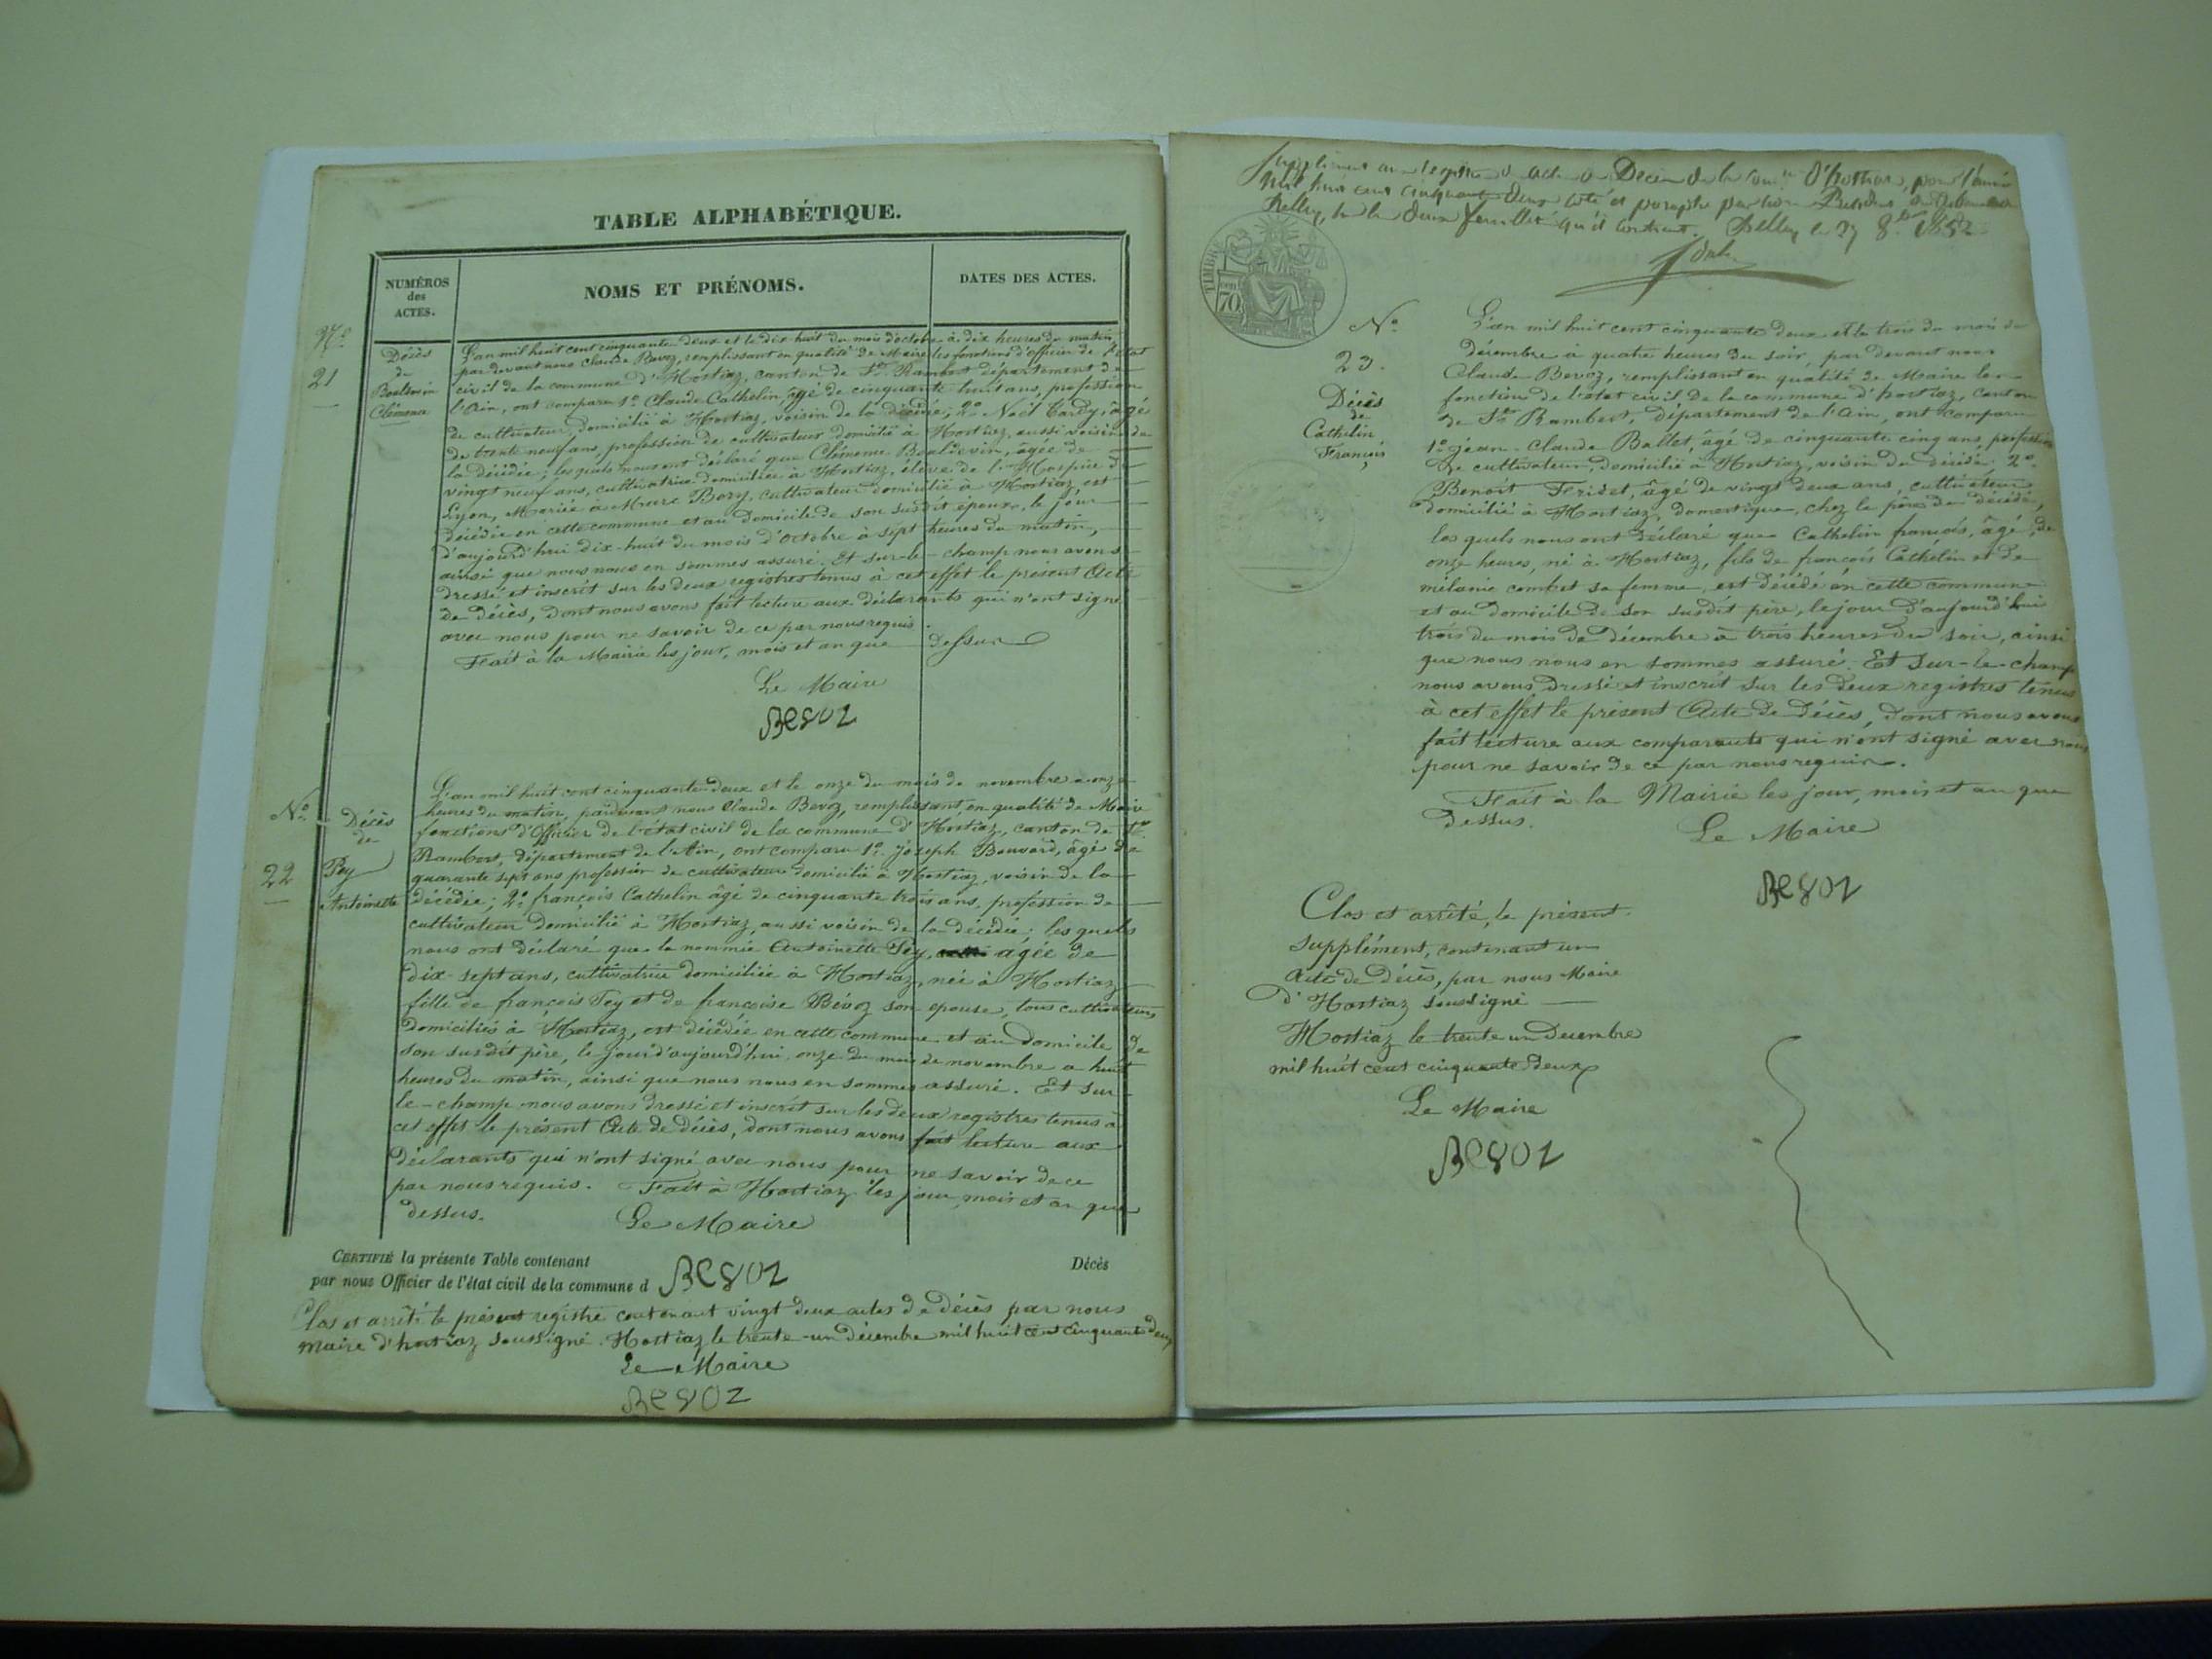 TABLE ALPHABÉTIQUE.
NUMÉROS
des
ACTES.
NOMS ET PRÉNOMS.
DATES DES ACTES.
N.o
21
Décès
de
Clémence
L'an mil huit cent cinquante deux et le dix huit du mois d'octobre à dix heures du matin,
par devant nous Claude Bevoz, remplissant en qualité de Maire les fonctions d'officier de l'état
civil de la commune d'Hostiaz, canton de St. Rambert département de
l'Ain, ont comparu 1.o Claude Cathelin, âgé de cinquante huit ans, profession
de cultivateur, domicilié à Hostiaz, voisin de la décédée; 2.o Noël Tardy, âgé
de trente neuf ans, profession de cultivateur domicilié à Hostiaz, aussi voisin de
la décédée; lesquels nous ont déclaré que Clémence âgée de
vingt neuf ans, cultivatrice domiciliée à Hostiaz, élève de l'Hospice de
Lyon, Mariée à Marc Bory, cultivateur domicilié à Hostiaz, est
décédée en cette commune et au domicile de son susdit époux, le jour
d'aujourd'hui dix-huit du mois d'Octobre à sept heures du matin,
ainsi que nous nous en sommes assuré. Et sur-le-champ nous avons
dressé et inscrit sur les deux registres tenus à cet effet le présent Acte
de décès, dont nous avons fait lecture aux déclarants qui n'ont signé
avec nous pour ne savoir de ce par nous requis.
Fait à la Mairie les jour, mois et an que dessus
Le Maire
Bevoz
N.o
22
Décès
de
Pey
Antoinette
L'an mil huit cent cinquante deux et le onze du mois de novembre à onze
heures du matin, pardevant nous Claude Bevoz, remplissant en qualité de Maire
fonctions d'Officier de l'état civil de la commune d'Hostiaz, canton de St.
Rambert, département de l'Ain, ont comparu 1.o Joseph Bouvard, âgé de
quarante sept ans profession de cultivateur domicilié à Hostiaz, voisin de la
décédée; 2.o françois Cathelin âgé de cinquante trois ans, profession de
cultivateur domicilié à Hostiaz, aussi voisin de la décédée; lesquels
nous ont déclaré que la nommée Antoinette Pey, âgée de
dix-sept ans, cultivatrice domiciliée à Hostiaz, née à Hostiaz
fille de françois Pey et de françoise Bévoz son epouse, tous cultivateurs
domiciliés à Hostiaz, est décédée en cette commune et au domicile de
son susdit père, le jour d'aujourd'hui onze du mois de novembre a huit
heures du matin, ainsi que nous nous en sommes assuré. Et sur
le-champ nous avons dressé et inscrit sur les deux registres tenus à
cet effet le présent Acte de décès, dont nous avons fait lecture aux
déclarants qui n'ont signé avec nous pour ne savoir de ce
par nous requis. Fait à Hostiaz les jour, mois et an que
dessus.
Le Maire
CERTIFIÉ la présente Table contenant Décès
par nous Officier de l'état civil de la commune d Bevoz
Clos et arrêté le présent registre contenant vingt deux actes de décès par nous
maire d'hostiaz soussigné. Hostiaz le trente-un décembre mil huit cent cinquante deux
Le Maire
Bevoz
Supplément au registre d'actes de Décès de la d'hostiaz, pour l'année
Mil huit cent cinquante deux coté et paraphé par nous Président du tribunal de
Belley, sur le deux feuillets qu'il contient. Belley le 27 8.bre 1852
TIMBRE
70
N.o
23.
Décès
de
Cathelin
François
L'an mil huit cent cinquante deux et le trois du mois de
décembre à quatre heures du soir, par devant nous
Claude Bevoz, remplissant en qualité de Maire les
fonction de l'état civil de la commune d'hostiaz, canton
de St. Rambert, département de l'Ain, ont comparu
1.o jean-Claude Ballet, âgé de cinquante cinq ans, profession
de cultivateur, domicilié à Hostiaz, voisin du décédé; 2.o
Benoit Fridet, âgé de vingt deux ans, cultivateur
domicilié à Hostiaz, domestique, chez le père du décédé,
les quels nous ont déclaré que Cathelin françois, âgé, de
onze heures, né à Hostiaz, fils de françois Cathelin et de
mélanie combet sa femme, est décédé en cette commune
et au domicile de son susdit père, le jour d'aujourd'hui
trois du mois de décembre à trois heures du soir, ainsi
que nous nous en sommes assuré. Et sur-le-champ
nous avons dressé et inscrit sur les deux registres tenus
à cet effet le présent Acte de décès, dont nous avons
fait lecture aux comparants qui n'ont signé avec nous
pour ne savoir de ce par nous requis.
Fait à la Mairie les jour, mois et an que
dessus.
Le Maire
Bevoz
Clos et arrêté, le présent
supplément, contenant un
Acte de décès, par nous Maire
d'Hostiaz soussigné
Hostiaz le trente un Decembre
mil huit cent cinquante deux
Le Maire
Bevoz